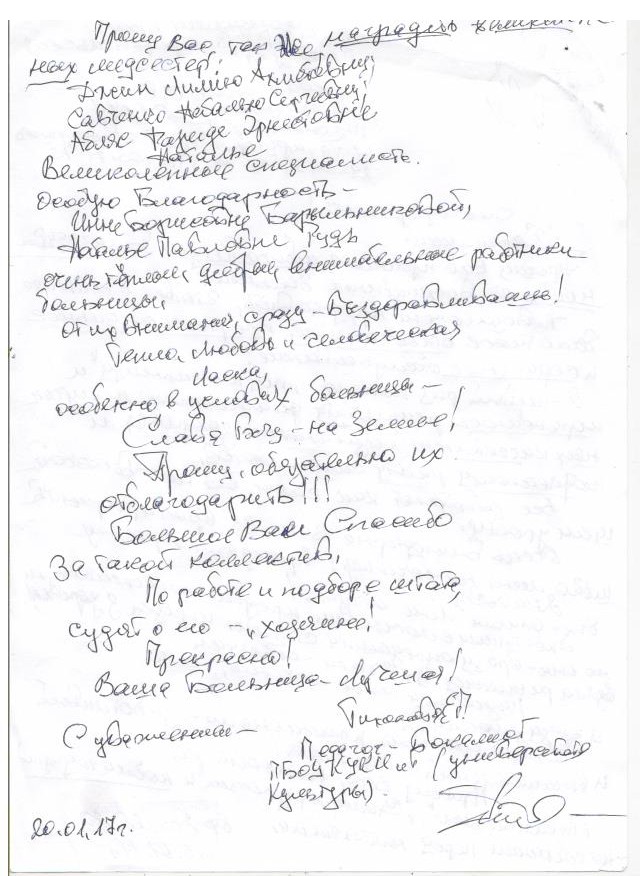 Прошу Вас, так же, наградить
ных медсестер:
Лилию
Савченко Наталью Сергеевну,
Фариде Эрнестовне
Наталье
Великолепные специалисты.
Особую Благодарность –
Инне Борисовне Барыльниковой,
Наталье Павловне Рудь
очень тёплые, добрые, внимательные работники
больницы.
от их внимания, сразу – Выздоравливаешь!
Тепло, Любовь и человеческая
Ласка,
особенно в условиях больницы –
Слава Богу – на Земле!
Прошу, обязательно их
отблагодарить!!!
Большое Вам Спасибо
За такой коллектив,
По работе и подборе штата,
судят о его – „хозяине!
Прекрасно!
Ваша Больница – Лучшая!
С уважением –
Педагог – Вокалист
университета
культуры).
20.01.17г.